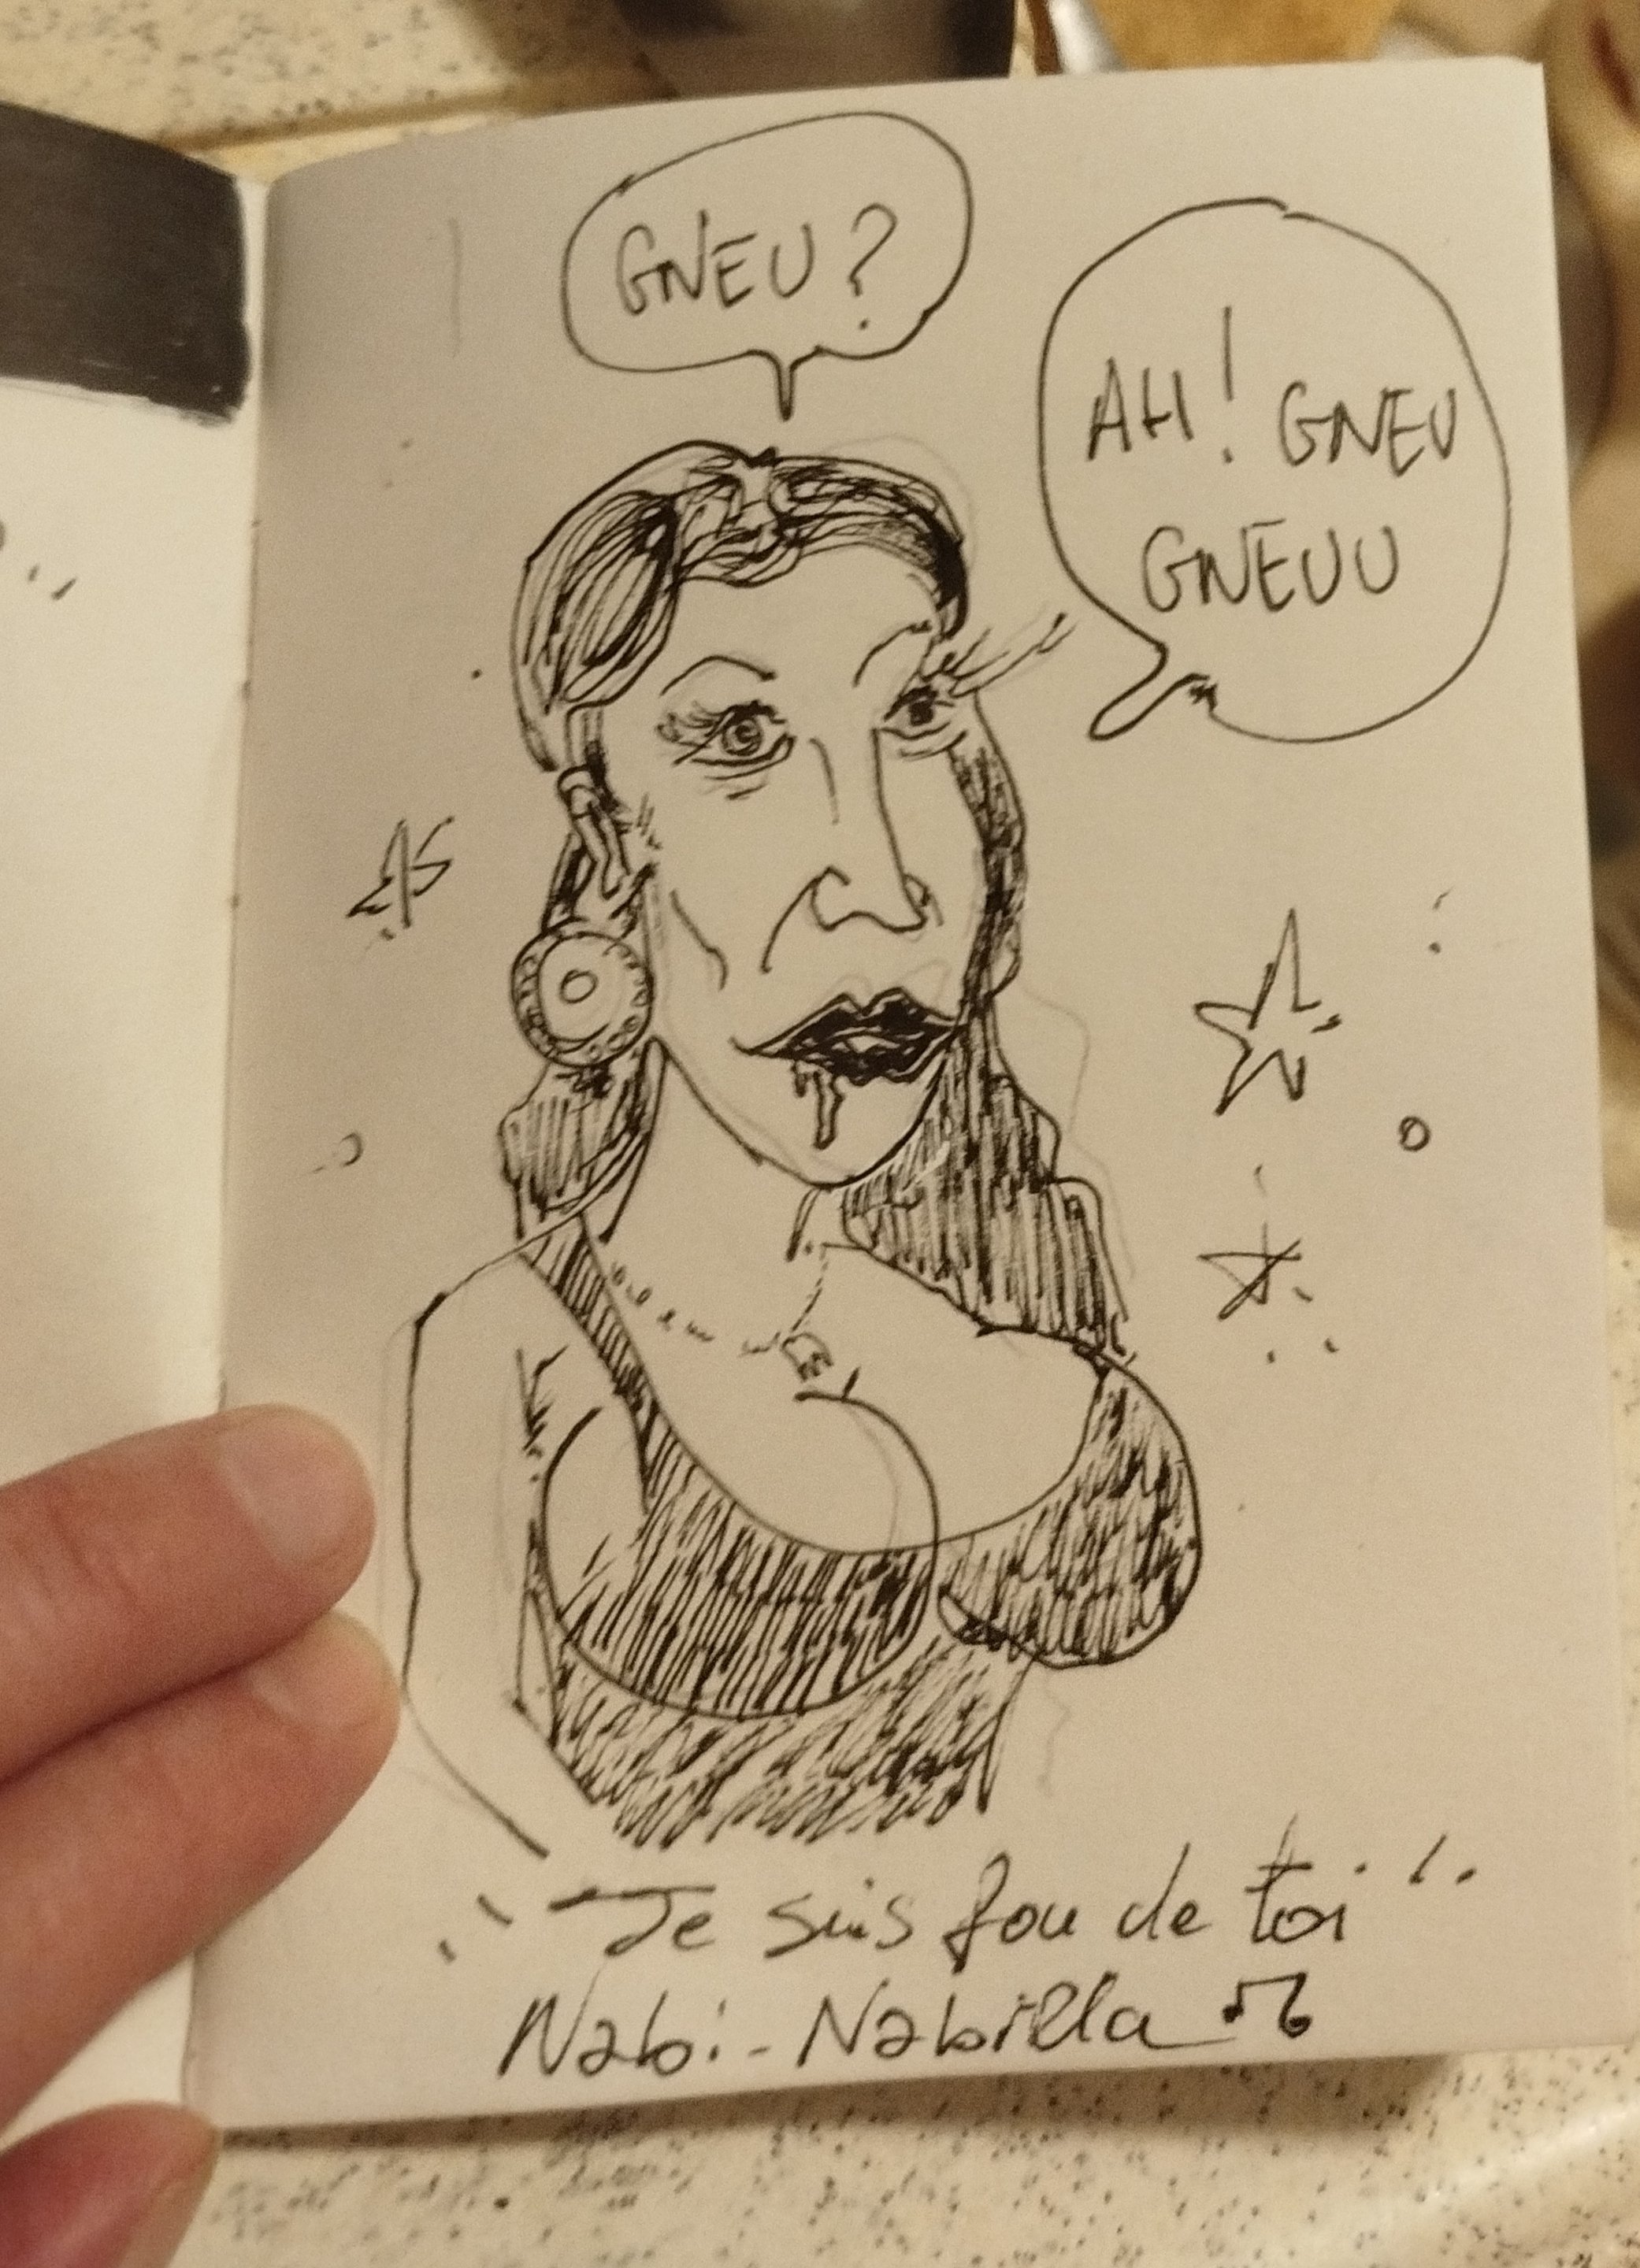 GNEU?
AH! GNEU
GNEUU
"Je suis fou de toi"
Nabi-Nabilla ♫